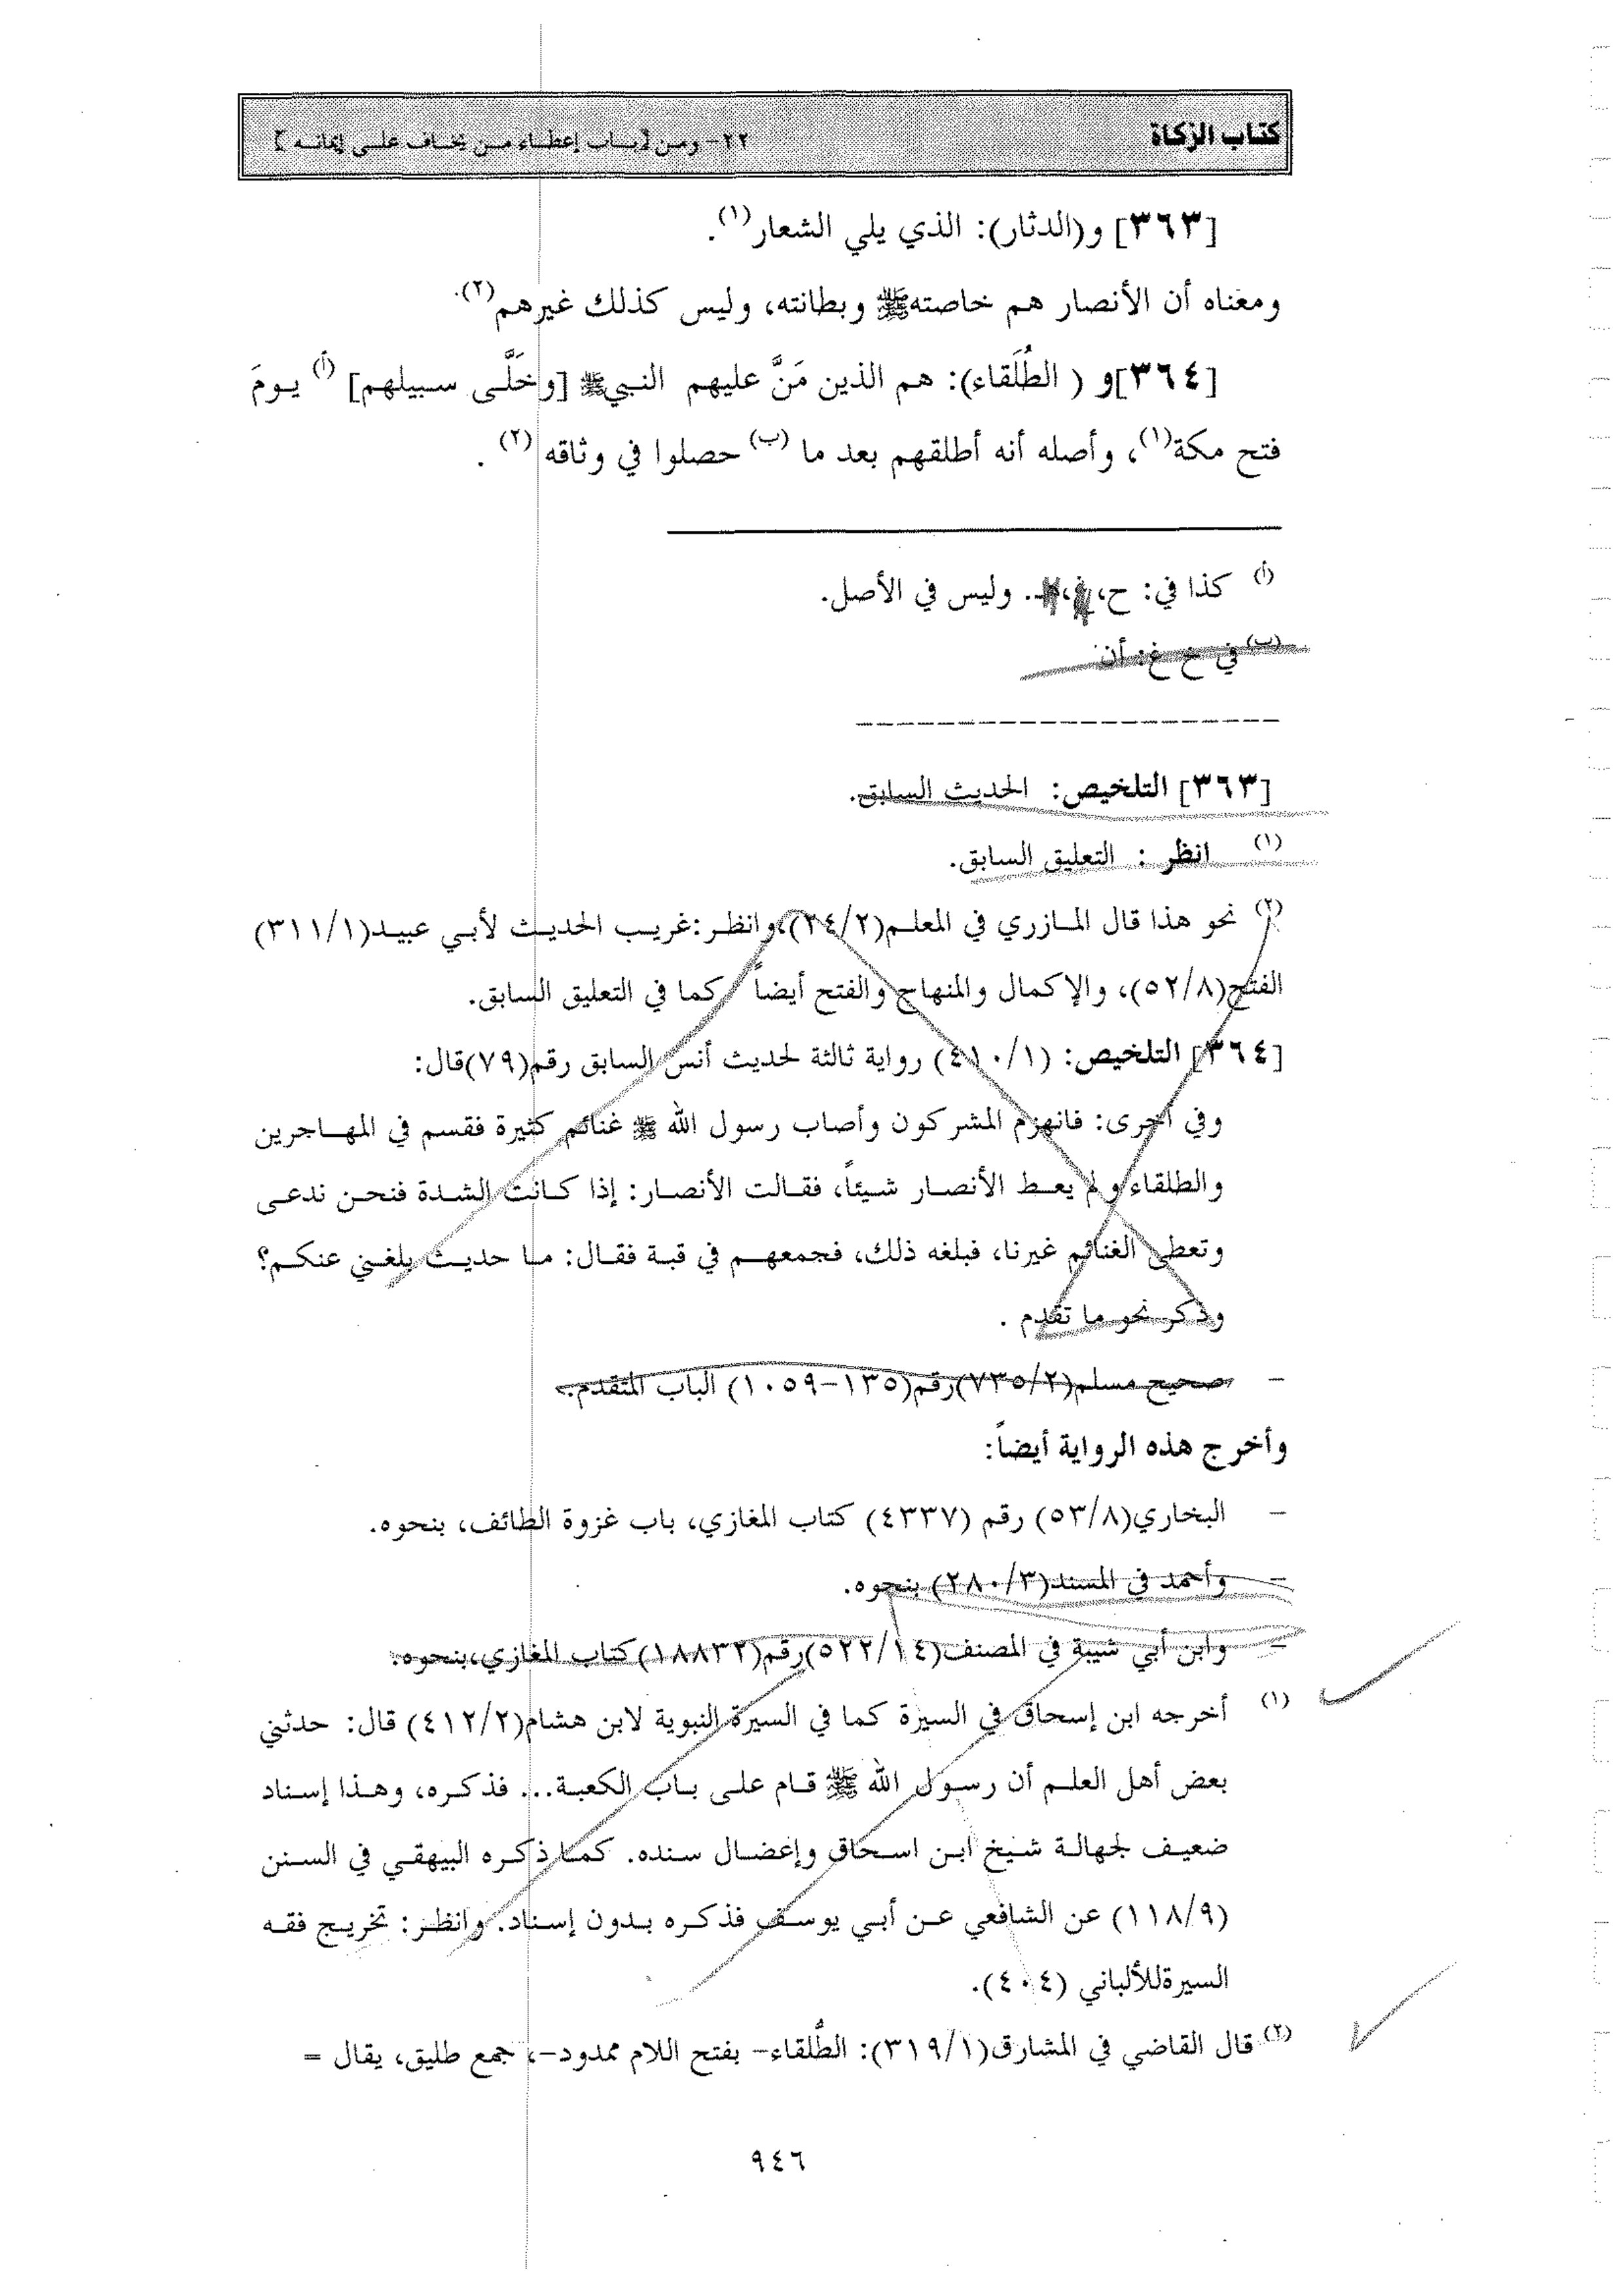 كتاب الزكاة ٢٢- ومن [باب إعطاء من يخاف على إيمانه]
[٣٦٣] و(الدثار): الذي يلي الشعار(١).
ومعناه أن الأنصار هم خاصته ﷺ وبطانته، وليس كذلك غيرهم(٢).
[٣٦٤]و ( الطُلَقاء): هم الذين مَنَّ عليهم النبي ﷺ [وخَلَّى سبيلهم] (أ) يومَ
فتح مكة(١)، وأصله أنه أطلقهم بعد ما (ب) حصلوا في وثاقه (٢) .
(أ) كذا في: ح، . وليس في الأصل.
(ب) في خ غ: أن
[٣٦٣] التلخيص: الحديث السابق.
(١) انظر : التعليق السابق.
(٢) نحو هذا قال المازري في المعلم(٢٤/٢)،وانظر:غريب الحديث لأبي عبيد(٣١١/١)
الفتح(٥٢/٨)، والإكمال والمنهاج والفتح أيضاً كما في التعليق السابق.
[٣٦٤] التلخيص: (٤١٠/١) رواية ثالثة لحديث أنس السابق رقم(٧٩)قال:
وفي أخرى: فانهزم المشركون وأصاب رسول الله ﷺ غنائم كثيرة فقسم في المهاجرين
والطلقاء ولم يعط الأنصار شيئاً، فقالت الأنصار: إذا كانت الشدة فنحن ندعى
وتعطى الغنائم غيرنا، فبلغه ذلك، فجمعهم في قبة فقال: ما حديث بلغني عنكم؟
وذكر نحو ما تقدم .
- صحيح مسلم(٧٣٥/٢)رقم(١٣٥-١٠٥٩) الباب المتقدم.
وأخرج هذه الرواية أيضاً:
- البخاري(٥٣/٨) رقم (٤٣٣٧) كتاب المغازي، باب غزوة الطائف، بنحوه.
- وأحمد في المسند(٢٨٠/٣) بنحوه.
- وابن أبي شيبة في المصنف(٥٢٢/١٤)رقم(١٨٨٣٢)كتاب المغازي،بنحوه.
(١) أخرجه ابن إسحاق في السيرة كما في السيرة النبوية لابن هشام(٤١٢/٢) قال: حدثني
بعض أهل العلم أن رسول الله ﷺ قام على باب الكعبة... فذكره، وهذا إسناد
ضعيف لجهالة شيخ ابن اسحاق وإعضال سنده. كما ذكره البيهقي في السنن
(١١٨/٩) عن الشافعي عن أبي يوسف فذكره بدون إسناد. وانظر: تخريج فقه
السيرةللألباني (٤٠٤).
(٢) قال القاضي في المشارق(٣١٩/١): الطُّلقاء- بفتح اللام ممدود-، جمع طليق، يقال =
٩٤٦